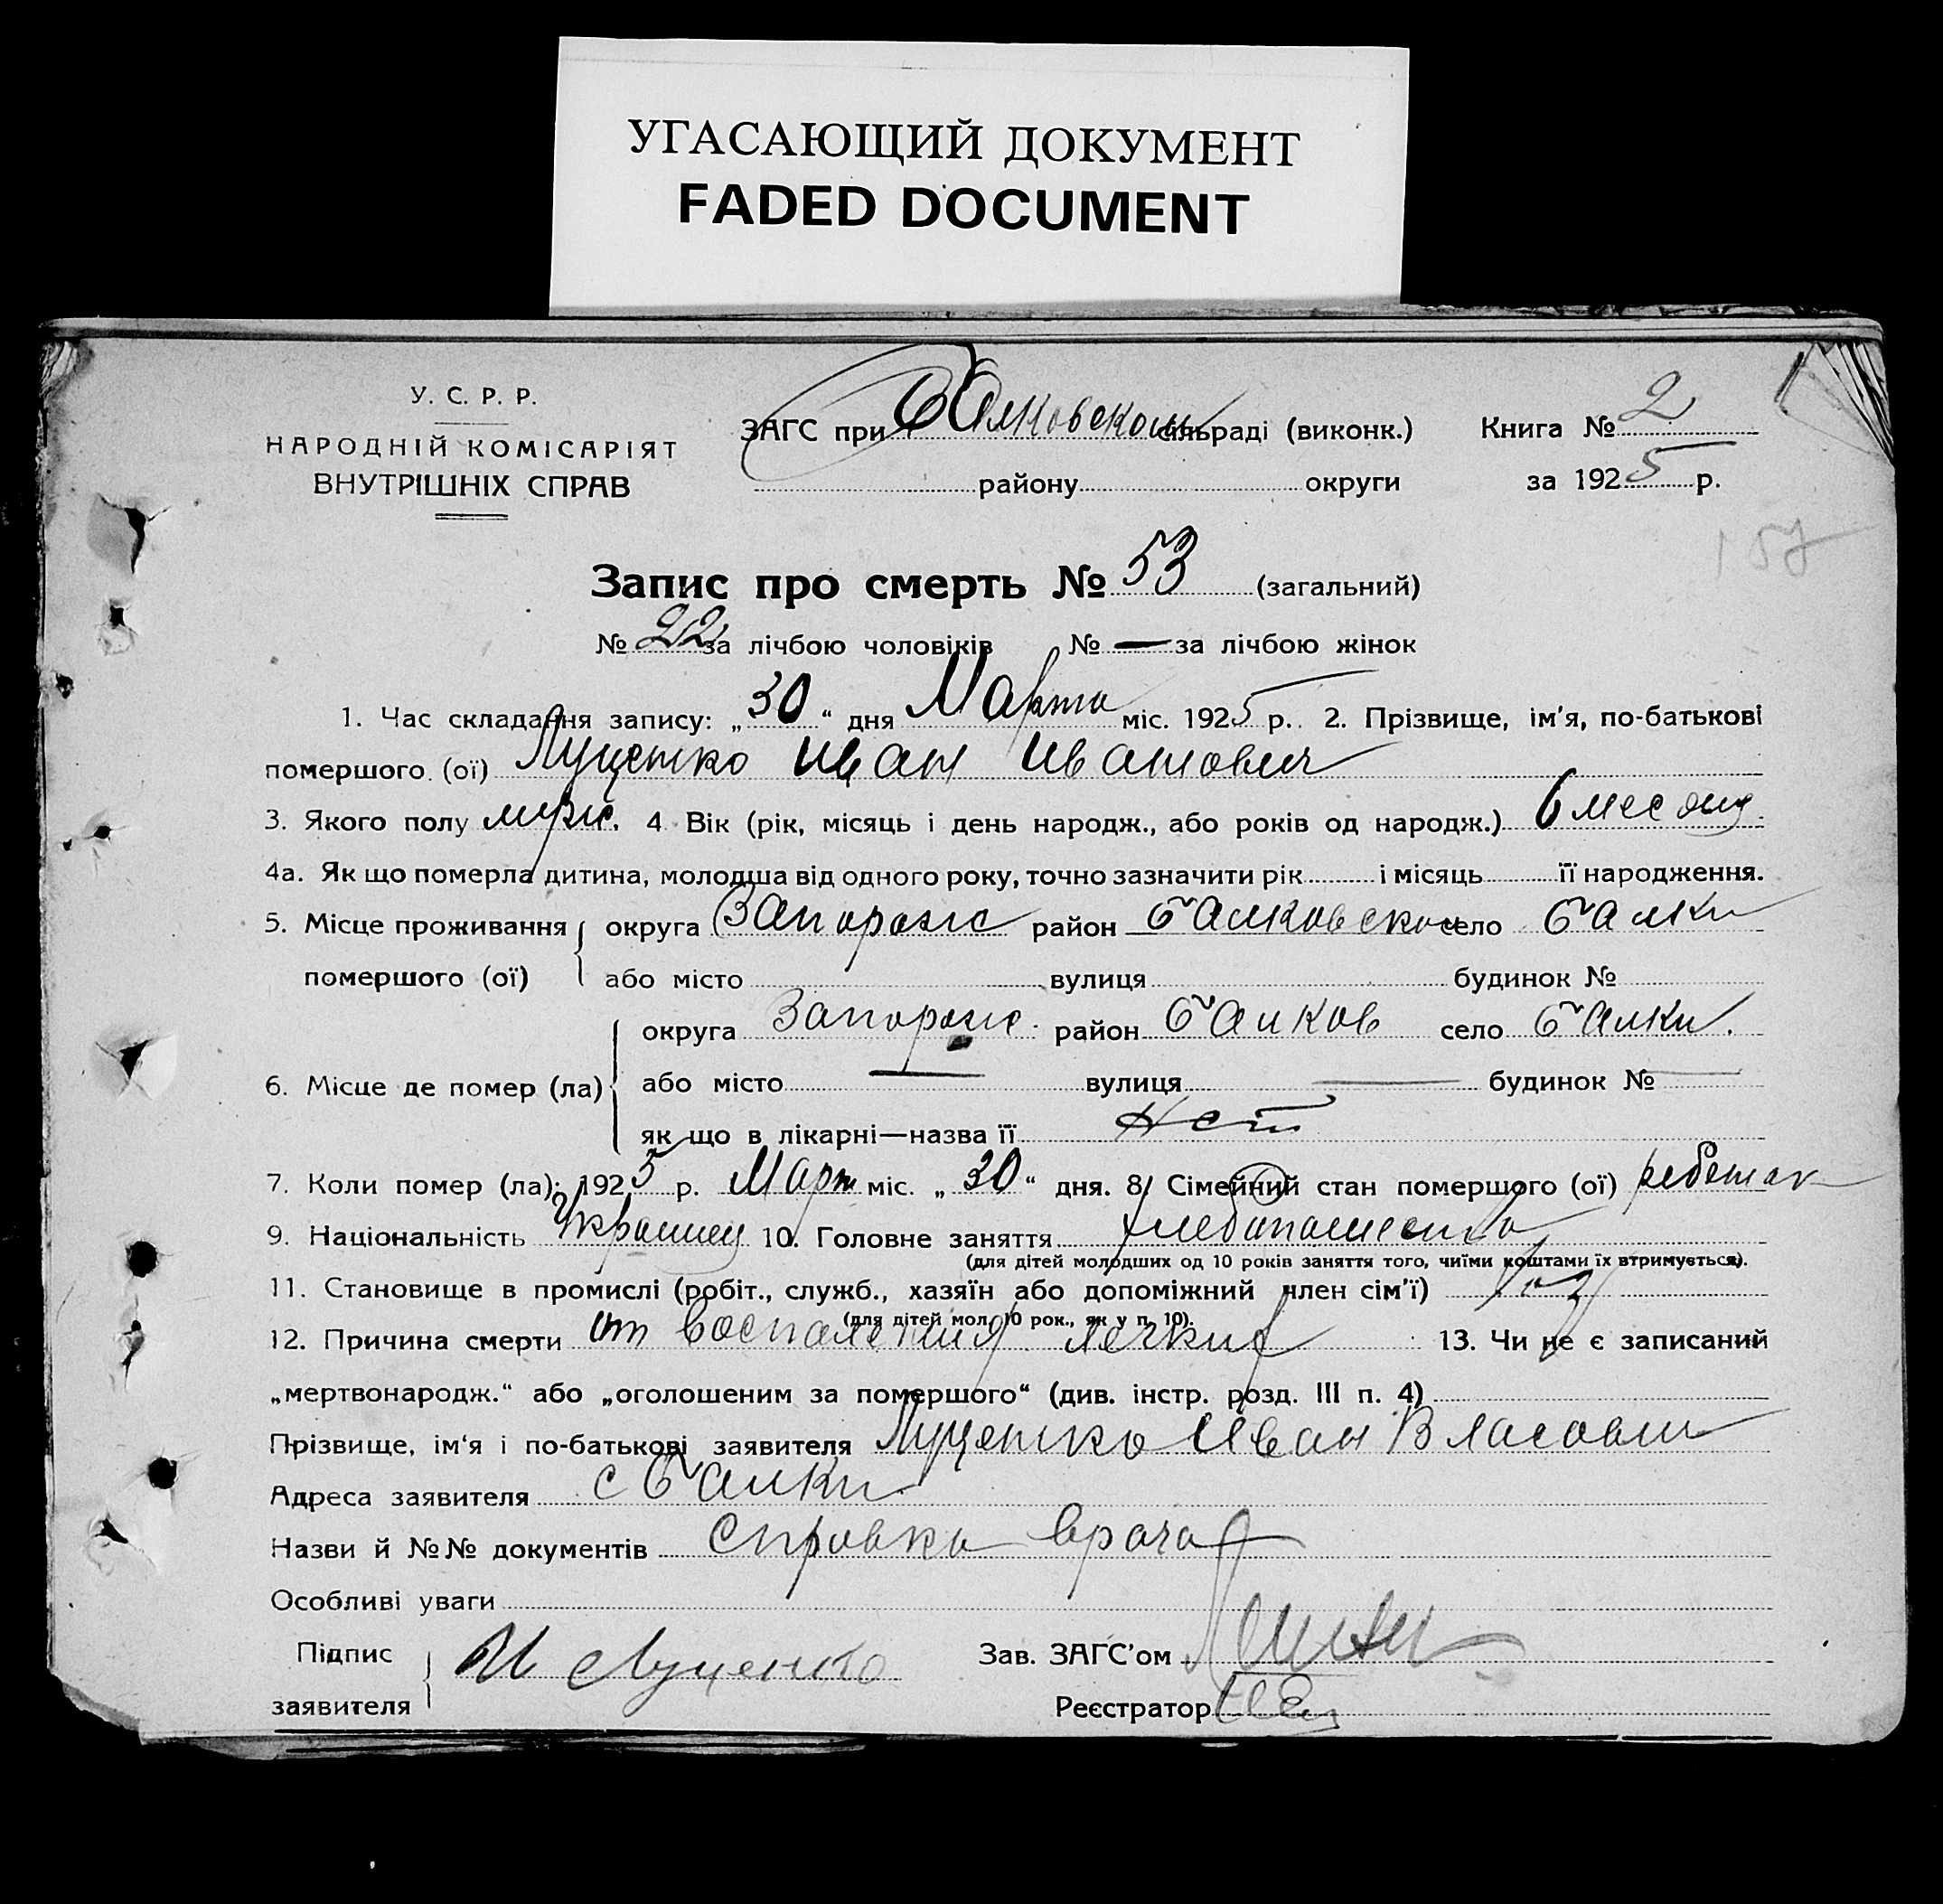 УГАСАЮЩИЙ ДОКУМЕНТ
FADED DOCUMENT
У. С. Р. Р.
НАРОДНІЙ КОМІСАРІЯТ
ВНУТРІШНІХ СПРАВ
ЗАГС при Балковском сільраді (виконк.)
району округи
Книга № 2
за 1925 р.
157
Запис про смерть № 53 (загальний)
№ 22 за лічбою чоловіків № — за лічбою жінок
1. Час складання запису: „30“ дня Марта міс. 1925 р. 2. Прізвище, ім'я, по-батькові
помершого (ої) Луценко Иван Иванович
3. Якого полу муж. 4 Вік (рік, місяць і день народж., або років од народж.) 6 мес
4а. Як що померла дитина, молодша від одного року, точно зазначити рік і місяць її народження.
5. Місце проживання помершого (ої) округа Запорож район Балковском село Балки
або місто вулиця будинок №
6. Місце де помер (ла) округа Запорож. район Балков село Балки.
або місто — вулиця — будинок № —
як що в лікарні—назва її нет
7. Коли помер (ла): 1925 р. Март міс. „30“ дня. 8. Сімейний стан помершого (ої) ребенок
9. Національність Украинец 10. Головне заняття хлебопашество
(для дітей молодших од 10 років заняття того, чиїми коштами їх втримується).
11. Становище в промислі (робіт., служб., хазяїн або допоміжний член сім'ї) хоз
(для дітей мол. 10 рок., як у п. 10).
12. Причина смерти от воспаления легких 13. Чи не є записаний
„мертвонародж.“ або „оголошеним за помершого“ (див. інстр. розд. III п. 4)
Прізвище, ім'я і по-батькові заявителя Луценко Иван Власович
Адреса заявителя с Балки
Назви й №№ документів Справка врача
Особливі уваги
Підпис заявителя И Луценко
Зав. ЗАГС'ом
Реєстратор